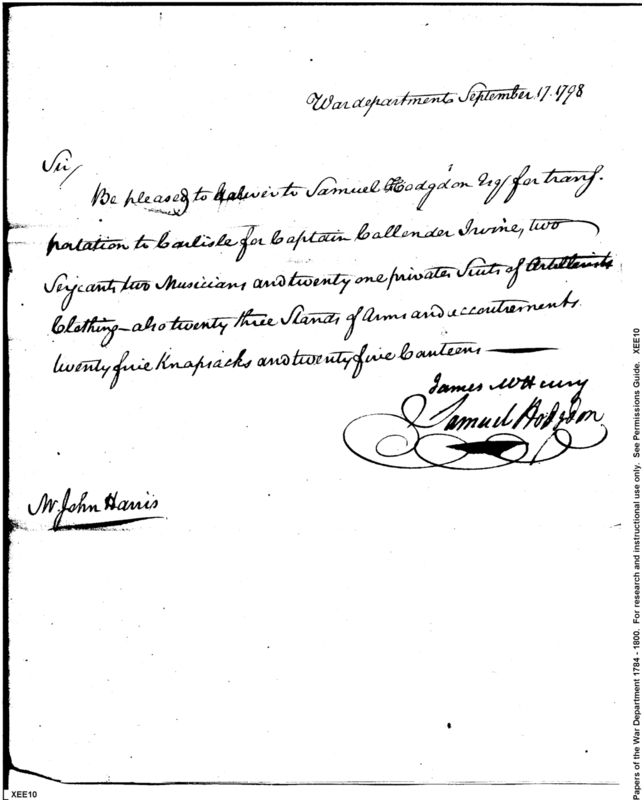 War department September 17. 1798
Sir/
Be pleased to deliver to Samuel Hodgdon Esq/ for trans-
portation to Carlisle for Captain Callender Irvine, two
Serjeants two Musicians and twenty one privates Suits of Artillerists
Clothing – also twenty three Stands of Arms and accoutrements
twenty five Knapsacks and twenty five Canteens —
James McHenry
Samuel Hodgdon
Mr. John Harris
XEE10
Papers of the War Department 1784 - 1800. For research and instructional use only. See Permissions Guide. XEE10